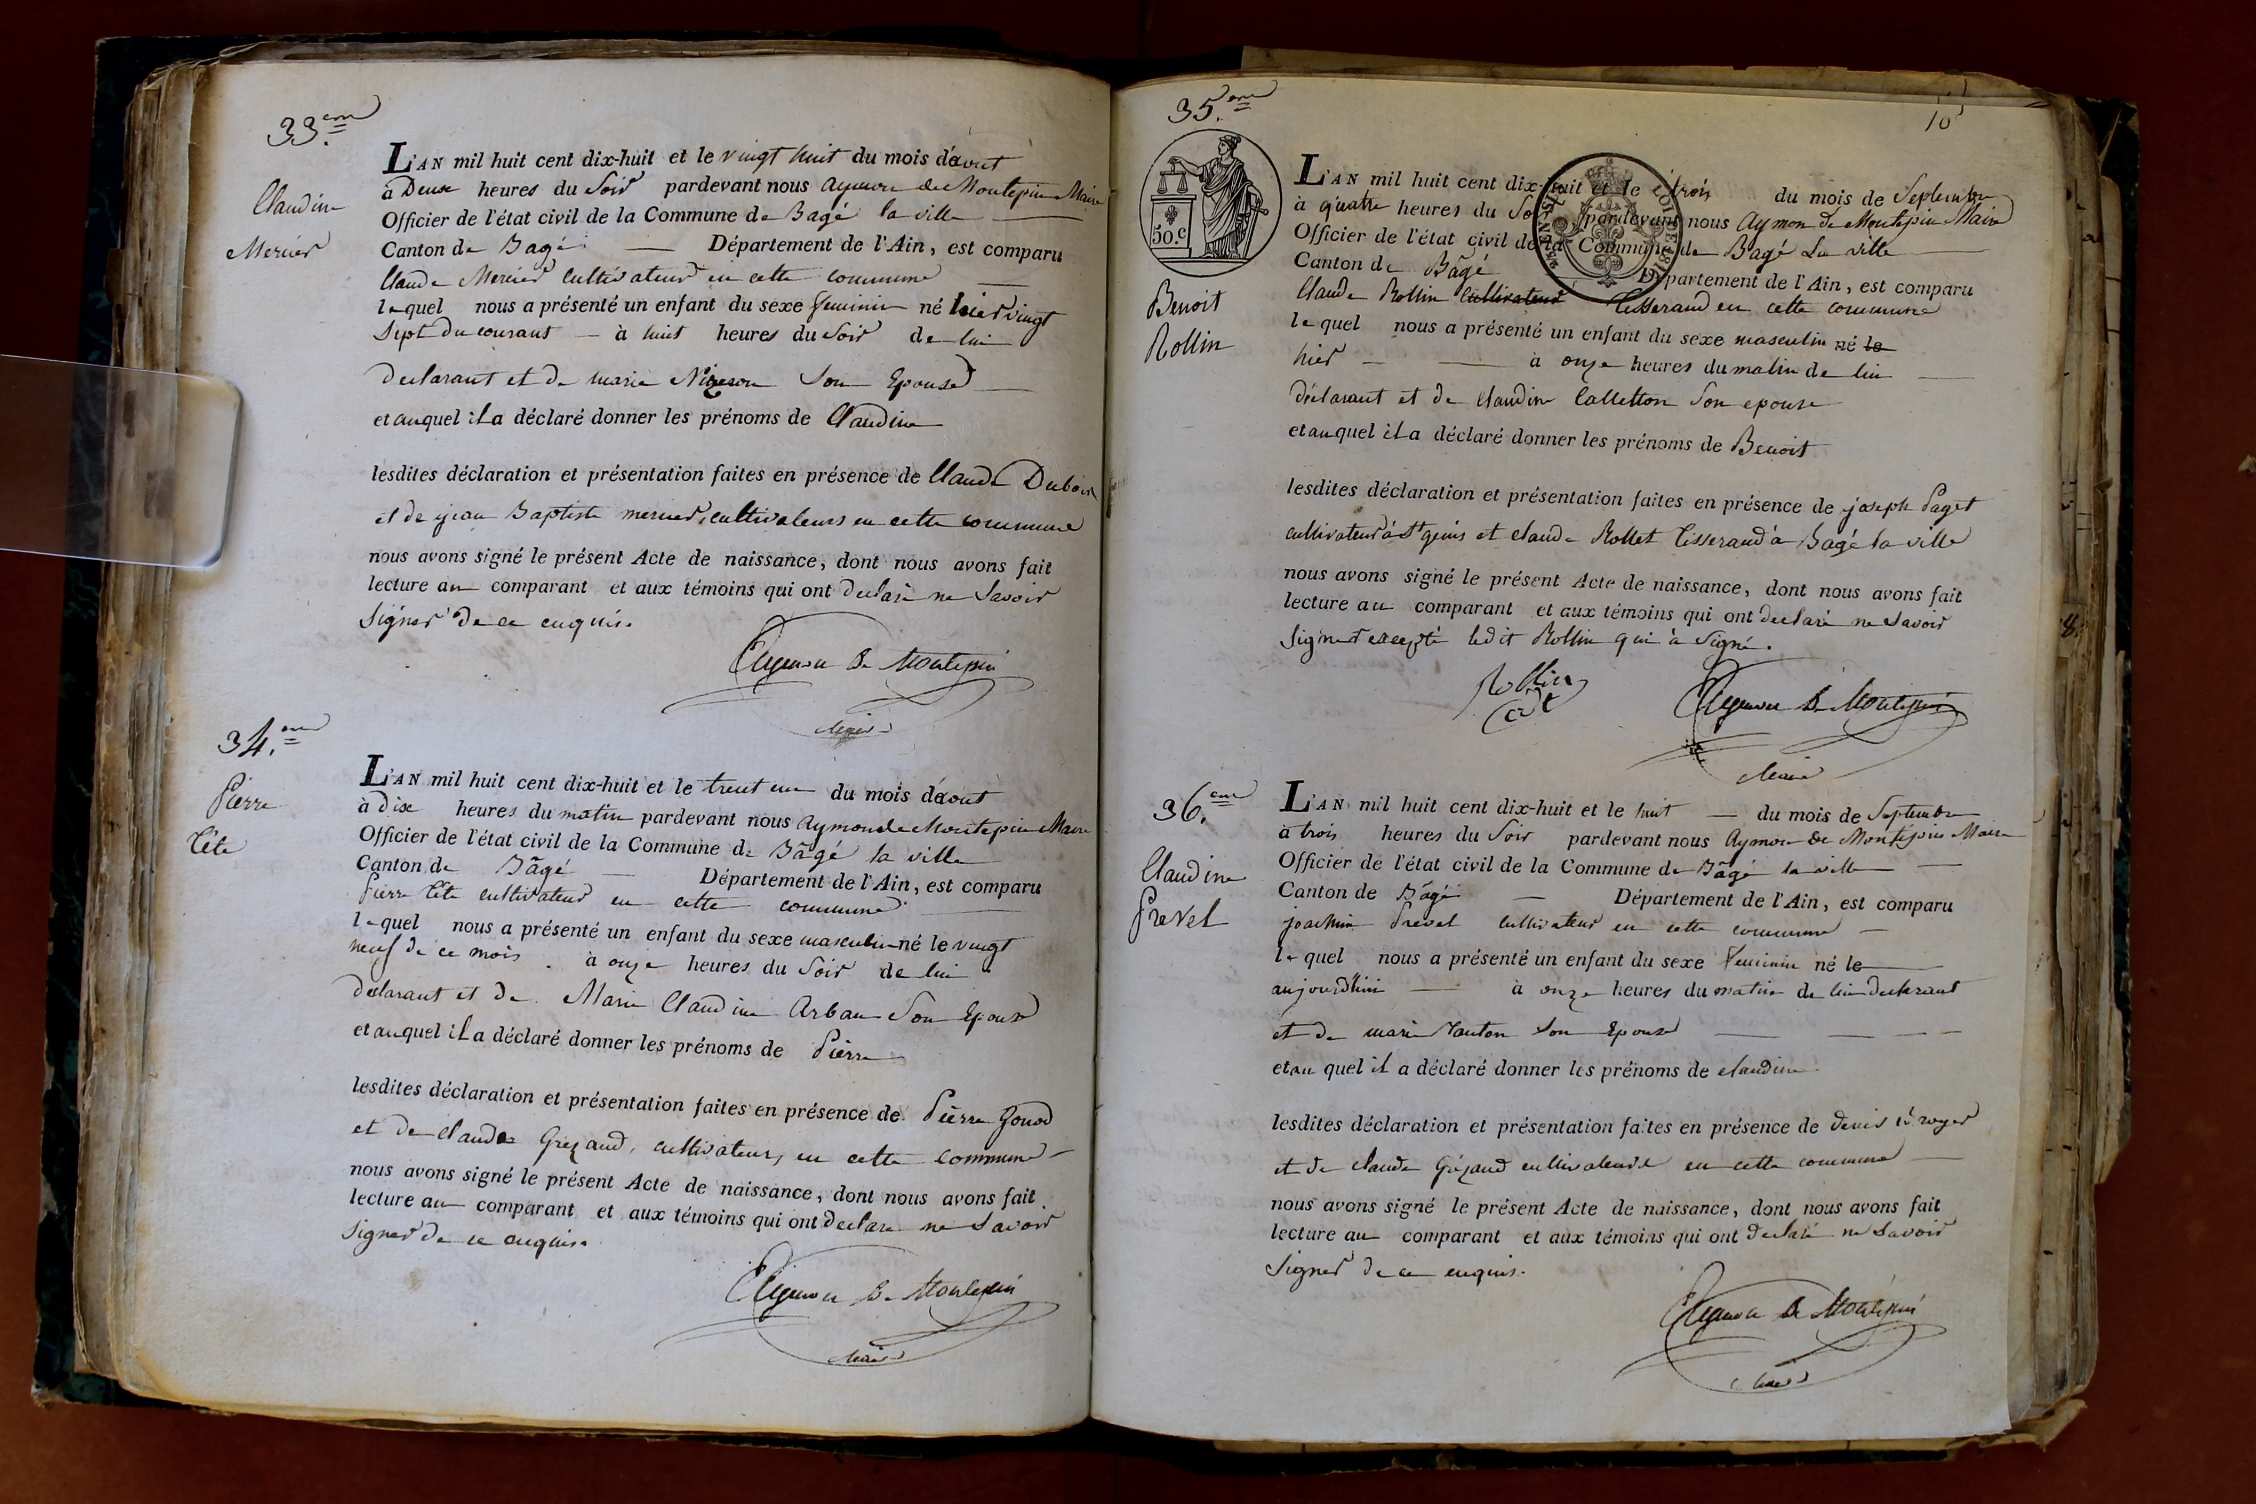 33.em
Claudine
Mercier
L'AN mil huit cent dix-huit et le vingt huit du mois d'aout
à Deux heures du Soir pardevant nous Aymon de Montepin Maire
Officier de l'état civil de la Commune de Bagé la ville
Canton de Bagé Département de l'Ain, est comparu
Claude Mercier Cultivateur en cette commune
lequel nous a présenté un enfant du sexe feminin né hier vingt
Sept du courant à huit heures du Soir de lui
declarant et de marie son Epouse
et auquel il a déclaré donner les prénoms de Claudine
lesdites déclaration et présentation faites en présence de Claude Dubois
et de jean Baptiste mercier, cultivateurs en cette commune
nous avons signé le présent Acte de naissance, dont nous avons fait
lecture au comparant et aux témoins qui ont declaré ne Savoir
Signer de ce enquis.
Aymon De Montepin
Maire
34.em
Pierre
Tête
L'AN mil huit cent dix-huit et le trent un du mois d'aout
à dix heures du matin pardevant nous Aymon de Montepin Maire
Officier de l'état civil de la Commune de Bâgé la ville
Canton de Bâgé Département de l'Ain, est comparu
Pierre Tête cultivateur en cette commune
lequel nous a présenté un enfant du sexe masculin né le vingt
neuf de ce mois à onze heures du Soir de lui
declarant et de Marie Claudine Arban Son Epouse
et auquel il a déclaré donner les prénoms de Pierre
lesdites déclaration et présentation faites en présence de Pierre Gonod
et de Claude Grezaud, cultivateurs, en cette commune
nous avons signé le présent Acte de naissance, dont nous avons fait
lecture au comparant et aux témoins qui ont declaré ne Savoir
Signer de ce enquis.
Aymon De Montepin
Maire
35.em
50.c
Benoit
Rollin
L'AN mil huit cent dix-huit et le trois du mois de Septembre
à quatre heures du Soir pardevant nous Aymon de Montepin Maire
Officier de l'état civil de la Commune de Bagé La ville
Canton de Bâgé Département de l'Ain, est comparu
Claude Rollin Cultivateur Tisserand en cette commune
lequel nous a présenté un enfant du sexe masculin né le
hier à onze heures du matin de lui
déclarant et de Claudine Catletton Son epouse
et auquel il a déclaré donner les prénoms de Benoit
lesdites déclaration et présentation faites en présence de joseph Paget
cultivateur à St genis et claude Rollet Tisserand à Bagé la ville
nous avons signé le présent Acte de naissance, dont nous avons fait
lecture au comparant et aux témoins qui ont declaré ne Savoir
Signer excepté ledit Rollin qui à Signé.
Rollin
Aymon De Montepin
Maire
36.em
Claudine
Prevel
L'AN mil huit cent dix-huit et le huit du mois de Septembre
à trois heures du Soir pardevant nous Aymon de Montépin Maire
Officier de l'état civil de la Commune de Bâgé la ville
Canton de Bâgé Département de l'Ain, est comparu
joachim Prevel Cultivateur en cette commune
lequel nous a présenté un enfant du sexe feminin né le
aujourdhui à onze heures du matin de lui declarant
et de marie Nanton Son Epouse
et au quel il a déclaré donner les prénoms de claudine
lesdites déclaration et présentation faites en présence de denis royer
et de claude Gézaud cultivateurs en cette commune
nous avons signé le présent Acte de naissance, dont nous avons fait
lecture au comparant et aux témoins qui ont declaré ne Savoir
Signer de ce enquis.
Aymon De Montepin
Maire